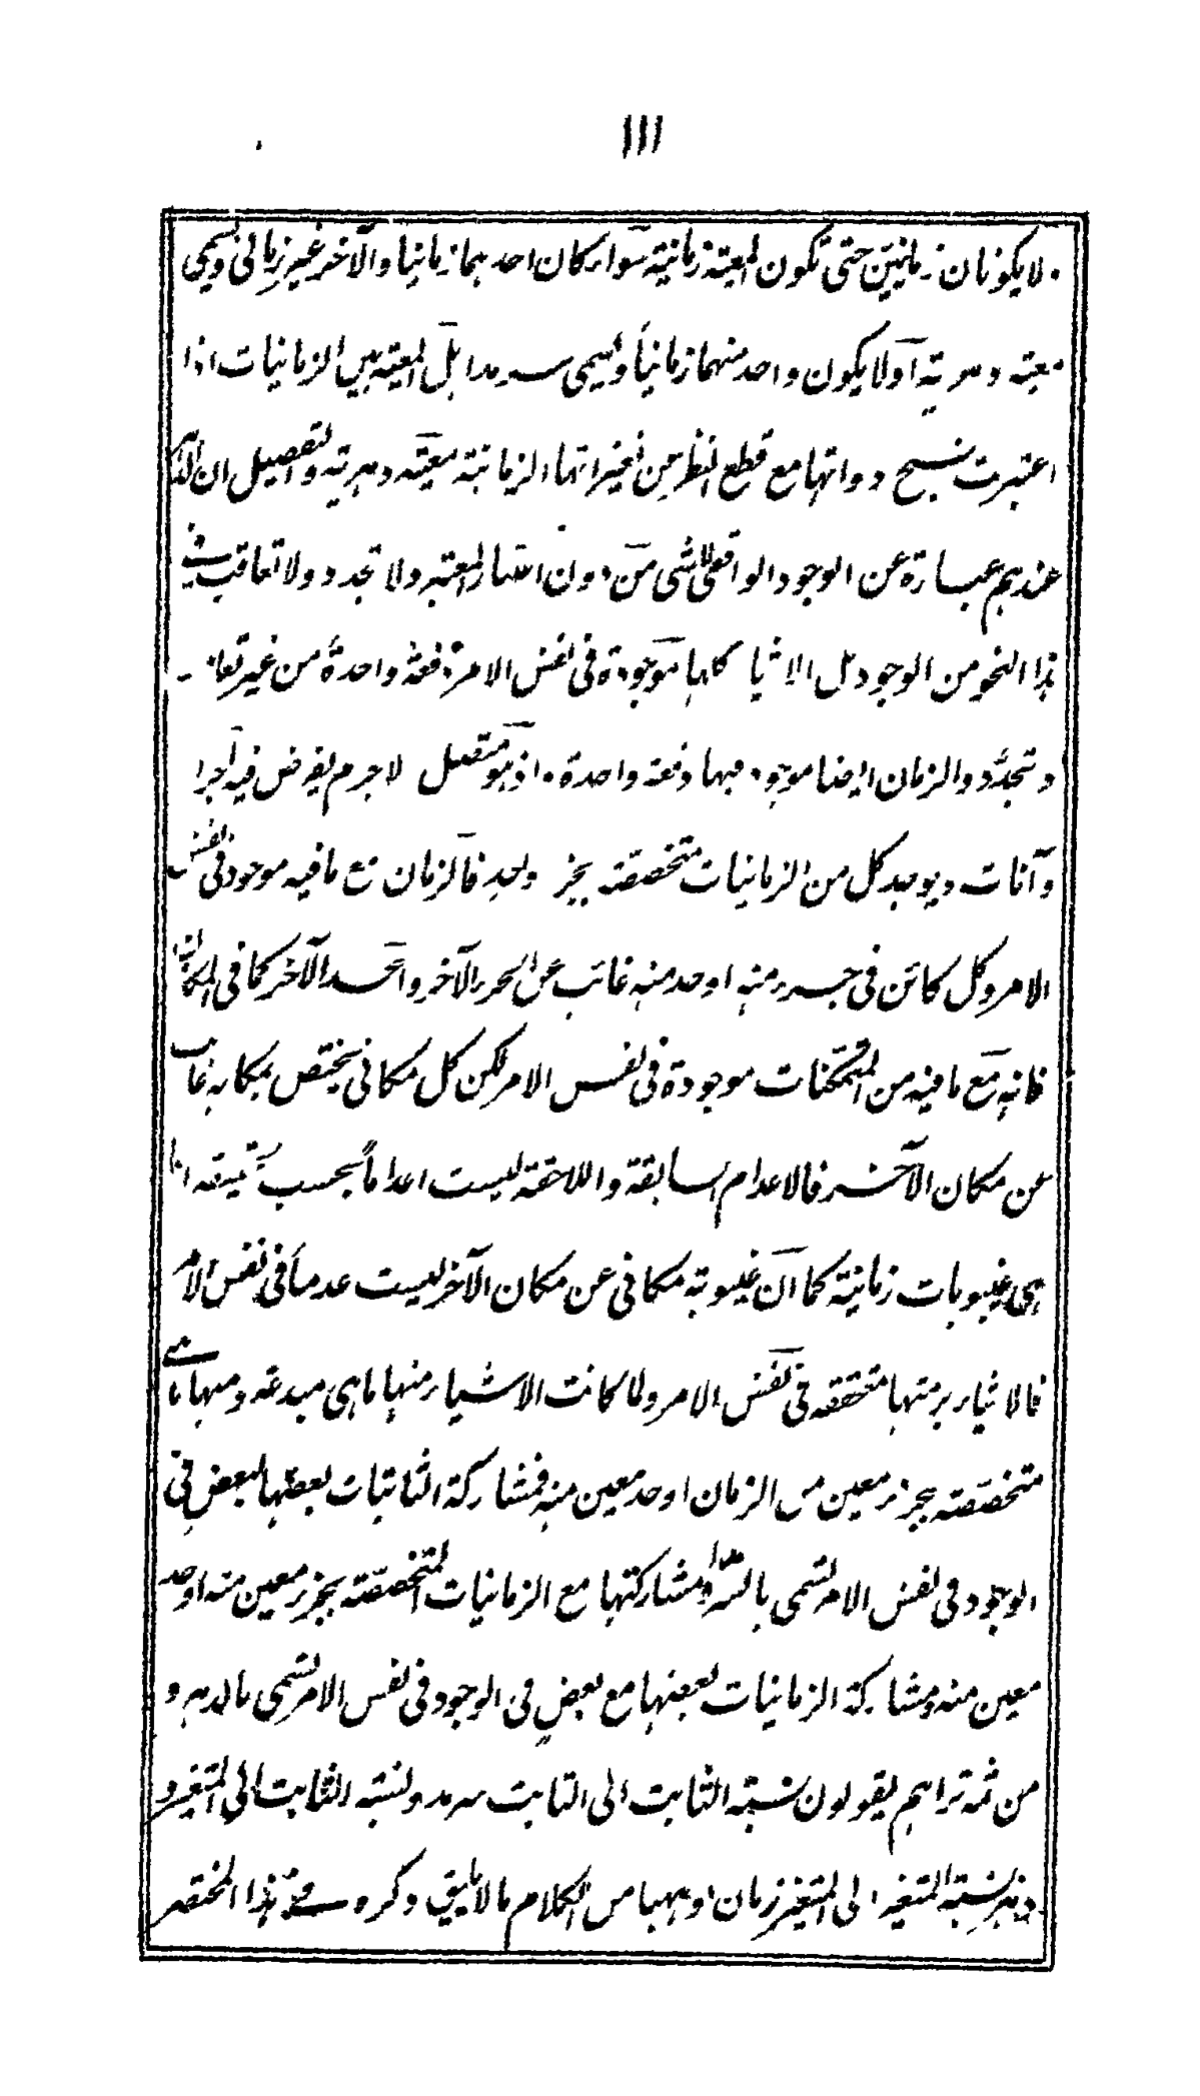 ١١١
لا يكونان زمانيين حتى تكون المعية زمانية سواء كان احدهما زمانيا والآخر غير زماني ويسمى
معية دهرية اولا يكون واحد منهما زمانيا ويسمى سرمدا بل المعية بين الزمانيات اذا
اعتبرت ذواتها مع قطع النظر عن تغيراتها الزمانية معية دهرية والتفصيل ان الدهر
عندهم عبارة عن الوجود الواقعى للاشى من دون اعتبار ولا تجدد ولا تعاقب فى
هذا النحو من الوجود بل الاشيا كلها موجودة فى نفس الامر دفعة واحدة من غير تعاقب
وتجدد والزمان ايضا موجود فيها دفعة واحدة اذ هو متصل لا جرم يفرض فيه اجزا
وآنات ويوجد كل من الزمانيات متخصصة بجز واحد فالزمان مع ما فيه موجود فى نفس
الامر وكل كائن فى جزء منه او حد منه غائب عن الجزء الآخر والحد الآخر كما فى المكان
فانه مع ما فيه من المتمكنات موجودة فى نفس الامر لكن كل مكانى يختص بمكانه غائب
عن مكان الآخر فالاعدام السابقة واللاحقة ليست اعداماً بحسب الحقيقة انما
هى غيبوبات زمانية كما ان غيبوبة مكانى عن مكان الآخر ليست عدماً فى نفس الامر
فالاشياء برمتها متحققة فى نفس الامر ولما كانت الاشياء منها ما هى مبدعة ومنها ما هى
متخصصة بجزء معين من الزمان او حد معين منه فمشاركة الثابتات بعضها لبعض فى
الوجود فى نفس الامر تسمى بالسرمد ومشاركتها مع الزمانيات المتخصصة بجزء معين منه او حد
معين منه ومشاركة الزمانيات بعضها مع بعض فى الوجود فى نفس الامر تسمى بالدهر و
من ثمة تراهم يقولون نسبة الثابت الى الثابت سرمد ونسبة الثابت الى المتغير و
دهر نسبة المتغير الى المتغير زمان وههنا من الكلام ما لا يليق ذكره فى هذا المختصر